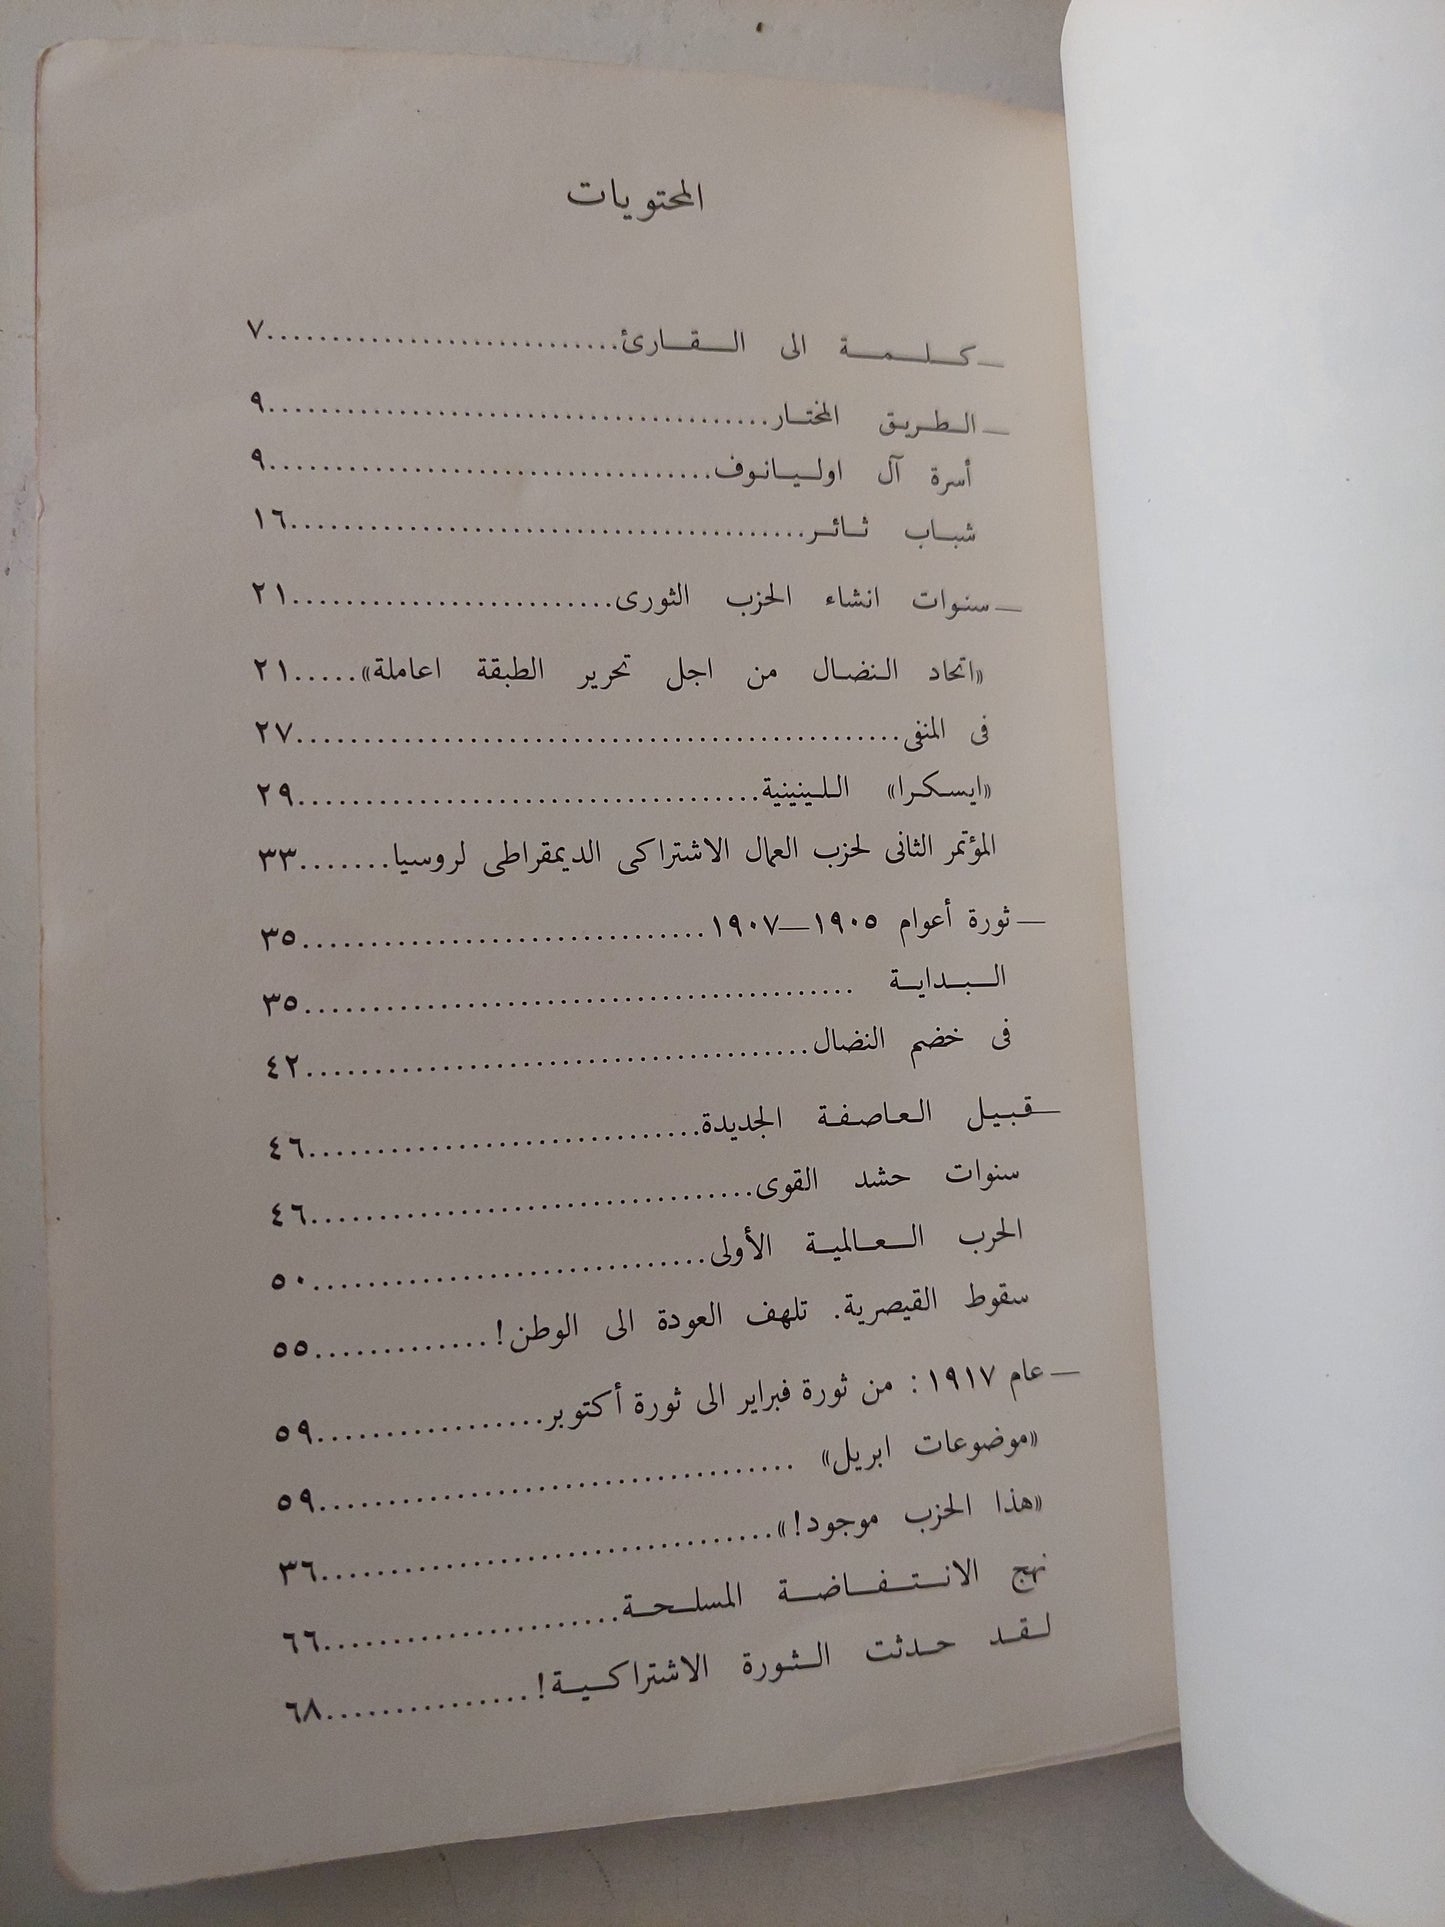 المحتويات
— كلمة الى القارئ............................٧
— الطريق المختار........................................٩
أسرة آل اوليانوف...................................٩
شباب ثائر.........................................١٦
— سنوات انشاء الحزب الثورى.........................٢١
«اتحاد النضال من اجل تحرير الطبقة اعاملة».....٢١
فى المنفى................................................٢٧
«ايسكرا» اللينينية.....................................٢٩
المؤتمر الثانى لحزب العمال الاشتراكى الديمقراطى لروسيا.......٣٣
— ثورة أعوام ١٩٠٥—١٩٠٧..............................٣٥
البداية .........................................٣٥
فى خضم النضال.....................................٤٢
— قبيل العاصفة الجديدة.............................٤٦
سنوات حشد القوى.................................٤٦
الحرب العالمية الأولى.............................٥٠
سقوط القيصرية. تلهف العودة الى الوطن!.............٥٥
— عام ١٩١٧: من ثورة فبراير الى ثورة أكتوبر.................٥٩
«موضوعات ابريل» ...................................٥٩
«هذا الحزب موجود!».................................٣٦
نهج الانتفاضة المسلحة......................٦٦
لقد حدثت الثورة الاشتراكية!...............٦٨